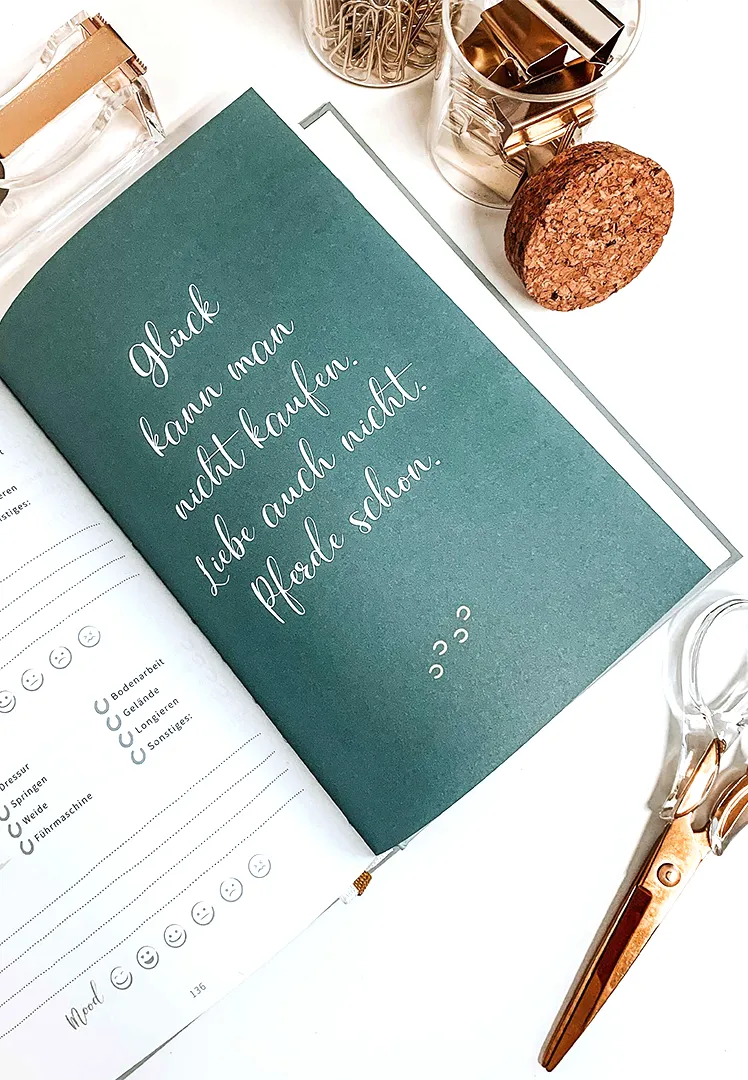 Glück
kann man
nicht kaufen.
Liebe auch nicht.
Pferde schon.
Bodenarbeit
Gelände
Longieren
Sonstiges:
Dressur
Springen
Weide
Führmaschine
Mood
136